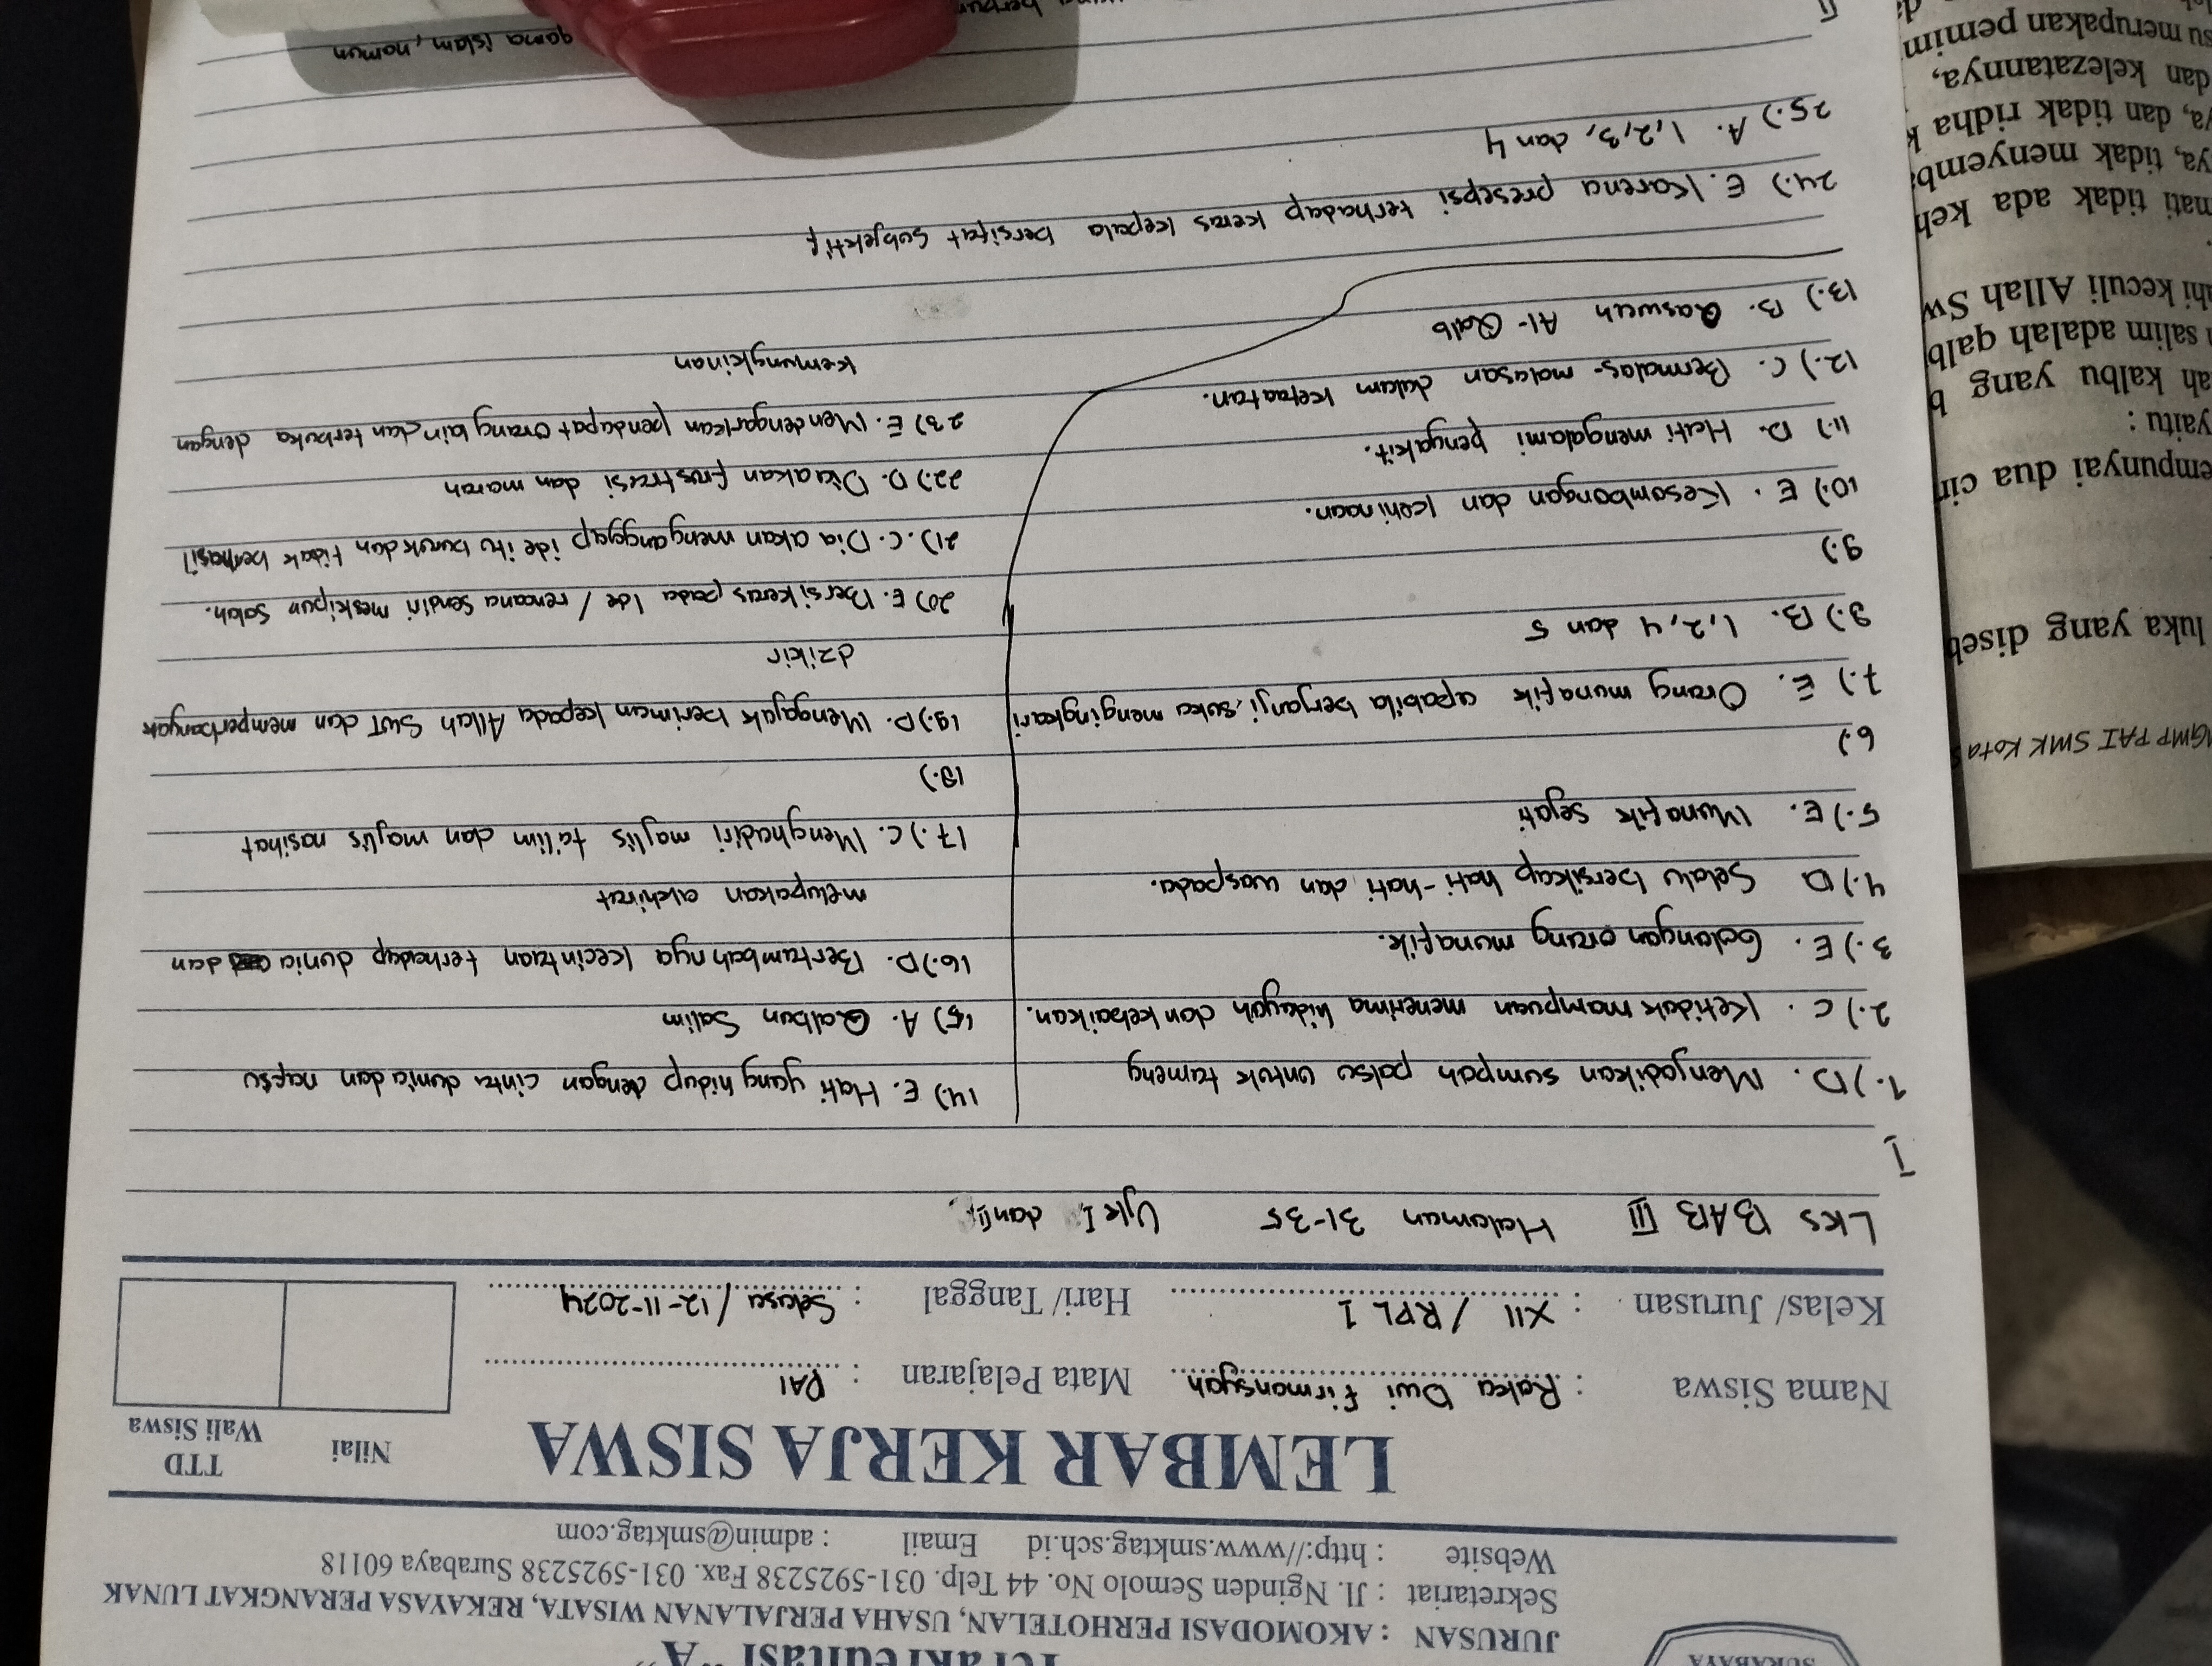 SURABAYA
Terakreditasi "A"
JURUSAN : AKOMODASI PERHOTELAN, USAHA PERJALANAN WISATA, REKAYASA PERANGKAT LUNAK
Sekretariat : Jl. Nginden Semolo No. 44 Telp. 031-5925238 Fax. 031-5925238 Surabaya 60118
Website : http://www.smktag.sch.id Email : admin@smktag.com
LEMBAR KERJA SISWA
Nilai
TTD
Wali Siswa
Nama Siswa : Raka Dwi firmansyah Mata Pelajaran : PAI
Kelas/ Jurusan : XII / RPL 1 Hari/ Tanggal : Selasa / 12-11-2024
Lks BAB III Halaman 31-35 Ujk I, dan II,
I
1.) D. Menjadikan sumpah palsu untuk tameng
2.) C. Ketidak mampuan menerima hidayah dan kebaikan.
3.) E. Golongan orang munafik.
4.) D Selalu bersikap hati-hati dan waspada.
5.) E. Munafik sejati
6.)
7.) E. Orang munafik apabila berjanji, suka mengingkari
8.) B. 1, 2, 4 dan 5
9.)
10.) E. Kesombongan dan kehinaan.
11.) D. Hati mengalami penyakit.
12.) C. Bermalas-malasan dalam ketaatan.
13.) B. Qaswah Al-Qalb
14.) E. Hati yang hidup dengan cinta dunia dan nafsu
15) A. Qalbun Salim
16.) D. Bertambahnya kecintaan terhadap dunia dan
melupakan akhirat
17.) C. Menghadiri majlis ta'lim dan majlis nasihat
18.)
19.) D. Mengajak beriman kepada Allah SWT dan memperbanyak
dzikir
20) E. Bersikeras pada Ide / rencana sendiri meskipun salah.
21). C. Dia akan menganggap ide itu buruk dan tidak berhasil
22.) D. Dia akan frustrasi dan marah
23) E. Mendengarkan pendapat orang lain dan terbuka dengan
kemungkinan
24.) E. Karena presepsi terhadap keras kepala bersifat Subjektif
25.) A. 1, 2, 3, dan 4
II
agama islam, namun
MGMP PAI SMK Kota
luka yang diseb
empunyai dua cir
yaitu :
ah kalbu yang b
salim adalah qalb
hi keculi Allah Sw
mati tidak ada keh
ya, tidak menyemb
ya, dan tidak ridha k
dan kelezatannya,
su merupakan pemim